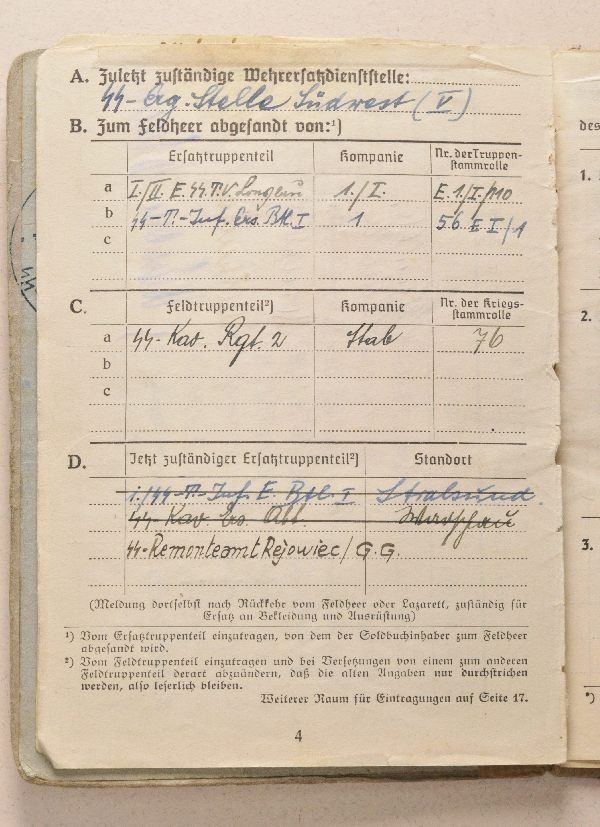 A. Zuletzt zuständige Wehrersatzdienststelle:
SS-Erg. Stelle Südwest (V)
B. Zum Feldheer abgesandt von:¹)
Ersatztruppenteil Kompanie Nr. der Truppen-
stammrolle
a I./II. E. SS. T.V. 1./I. E. 1./I./110
b SS-T.-Inf. Ers. Btl. I 1 56 E I/1
c
C. Feldtruppenteil²) Kompanie Nr. der Kriegs-
stammrolle
a SS-Kav. Rgt. 2 Stab 76
b
c
D. Jetzt zuständiger Ersatztruppenteil²) Standort
1./SS-T.-Inf. E. Btl. I Stralsund.
SS-Kav. Ers. Abt. Warschau
SS-Remonteamt Rejowiec/G.G.
(Meldung dortselbst nach Rückkehr vom Feldheer oder Lazarett, zuständig für
Ersatz an Bekleidung und Ausrüstung)
¹) Vom Ersatztruppenteil einzutragen, von dem der Soldbuchinhaber zum Feldheer
abgesandt wird.
²) Vom Feldtruppenteil einzutragen und bei Versetzungen von einem zum anderen
Feldtruppenteil derart abzuändern, daß die alten Angaben nur durchstrichen
werden, also leserlich bleiben.
Weiterer Raum für Eintragungen auf Seite 17.
4
des
1.
2.
3.